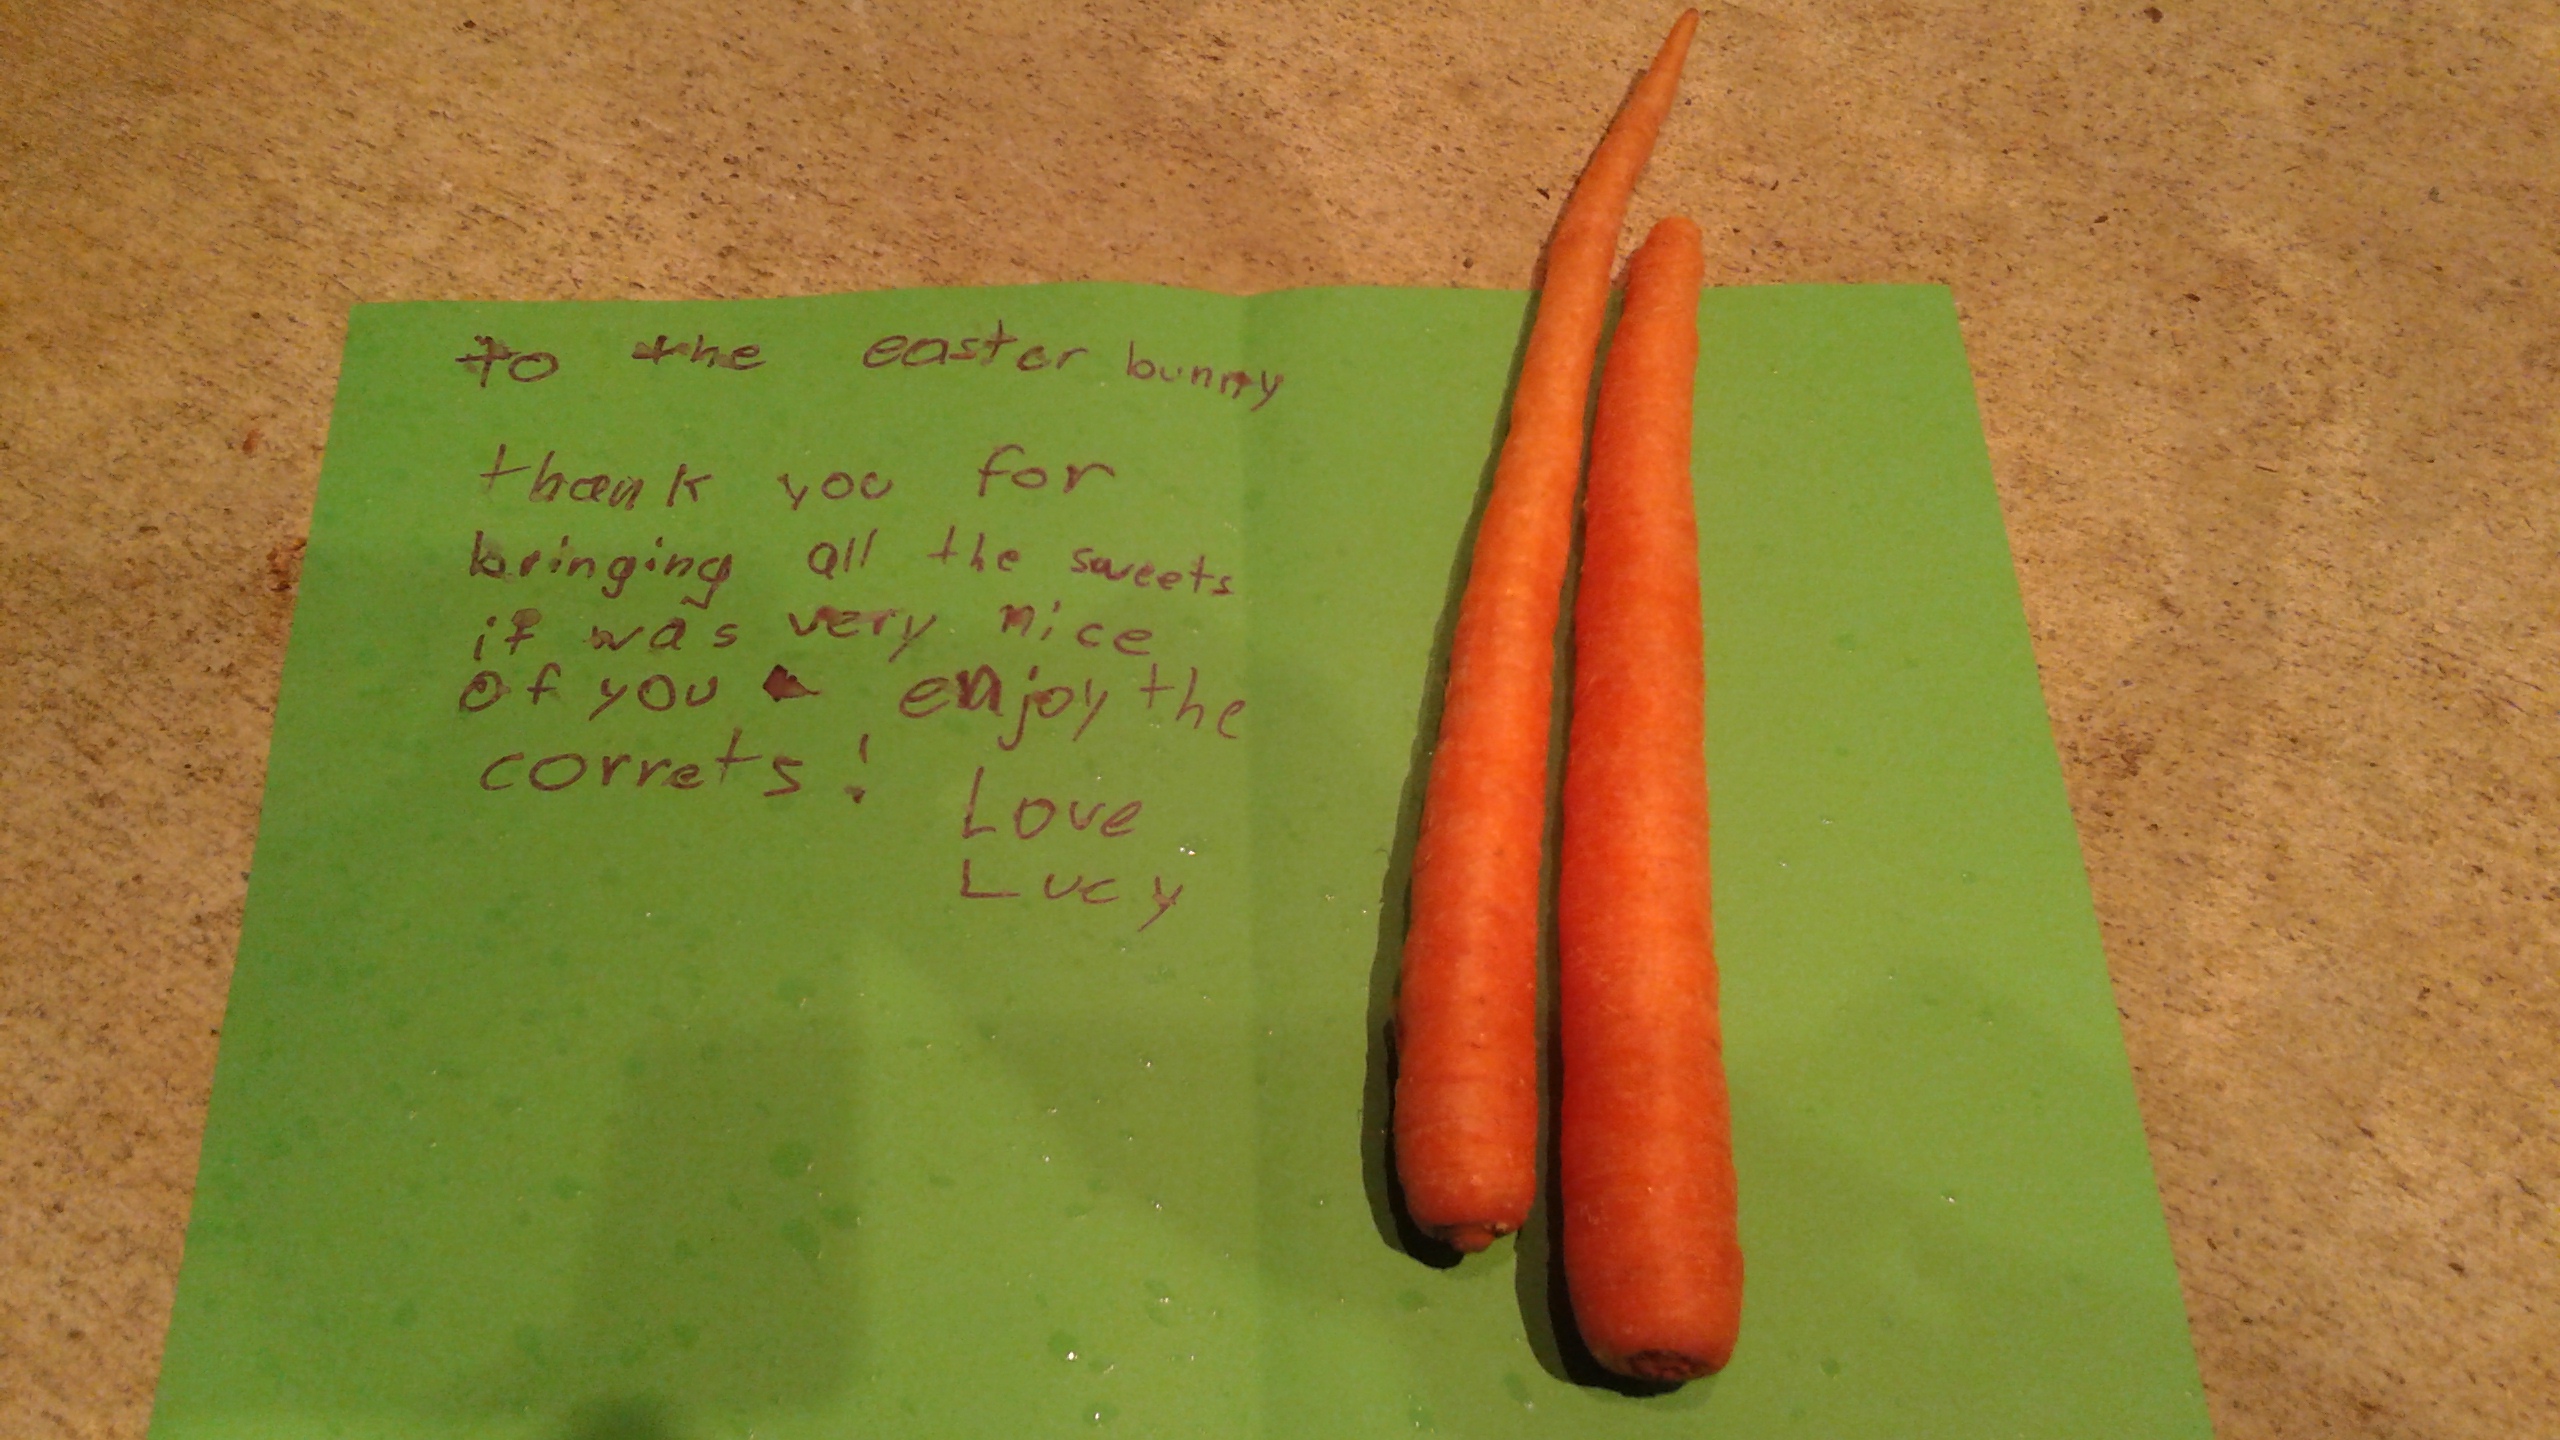 to the easter bunny
thank you for
bringing all the sweets
it was very nice
of you enjoy the
correts!
Love
Lucy